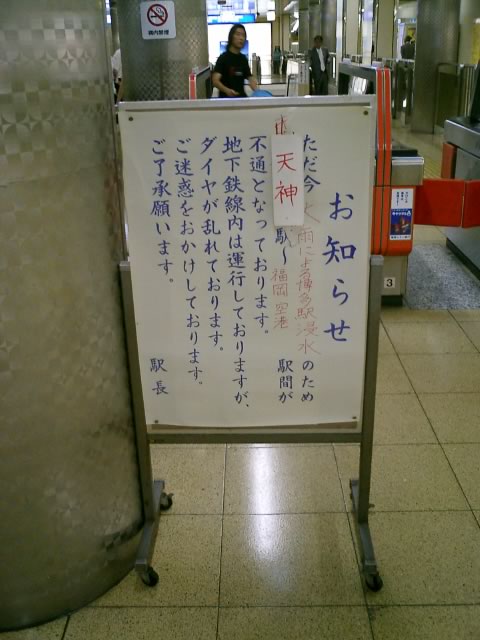 お知らせ
ただ今 大雨による博多駅浸水のため
天神駅〜福岡空港駅間が
不通となっております。
地下鉄線内は運行しておりますが、
ダイヤが乱れております。
ご迷惑をおかけしております。
ご了承願います。
駅長
3